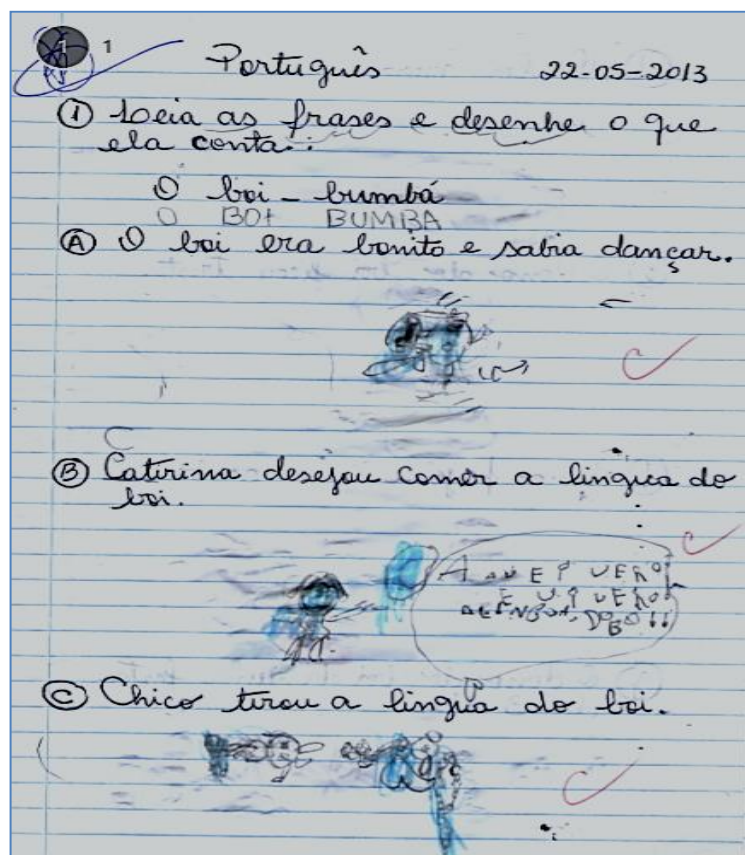 1 1
Português 22-05-2013
① Leia as frases e desenhe o que
ela conta.:
O boi - bumbá
O BOI BUMBA
Ⓐ O boi era bonito e sabia dançar.
Ⓑ Catirina desejou comer a lingua do
boi.
Ⓒ Chico tirou a lingua do boi.